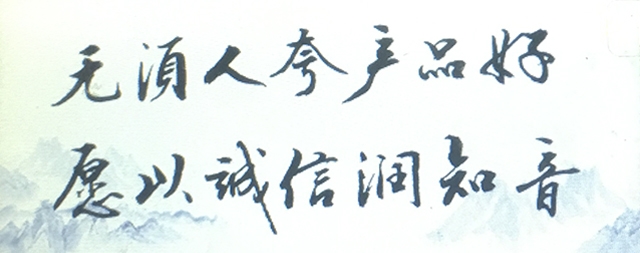 无须人夸产品好
愿以誠信润知音